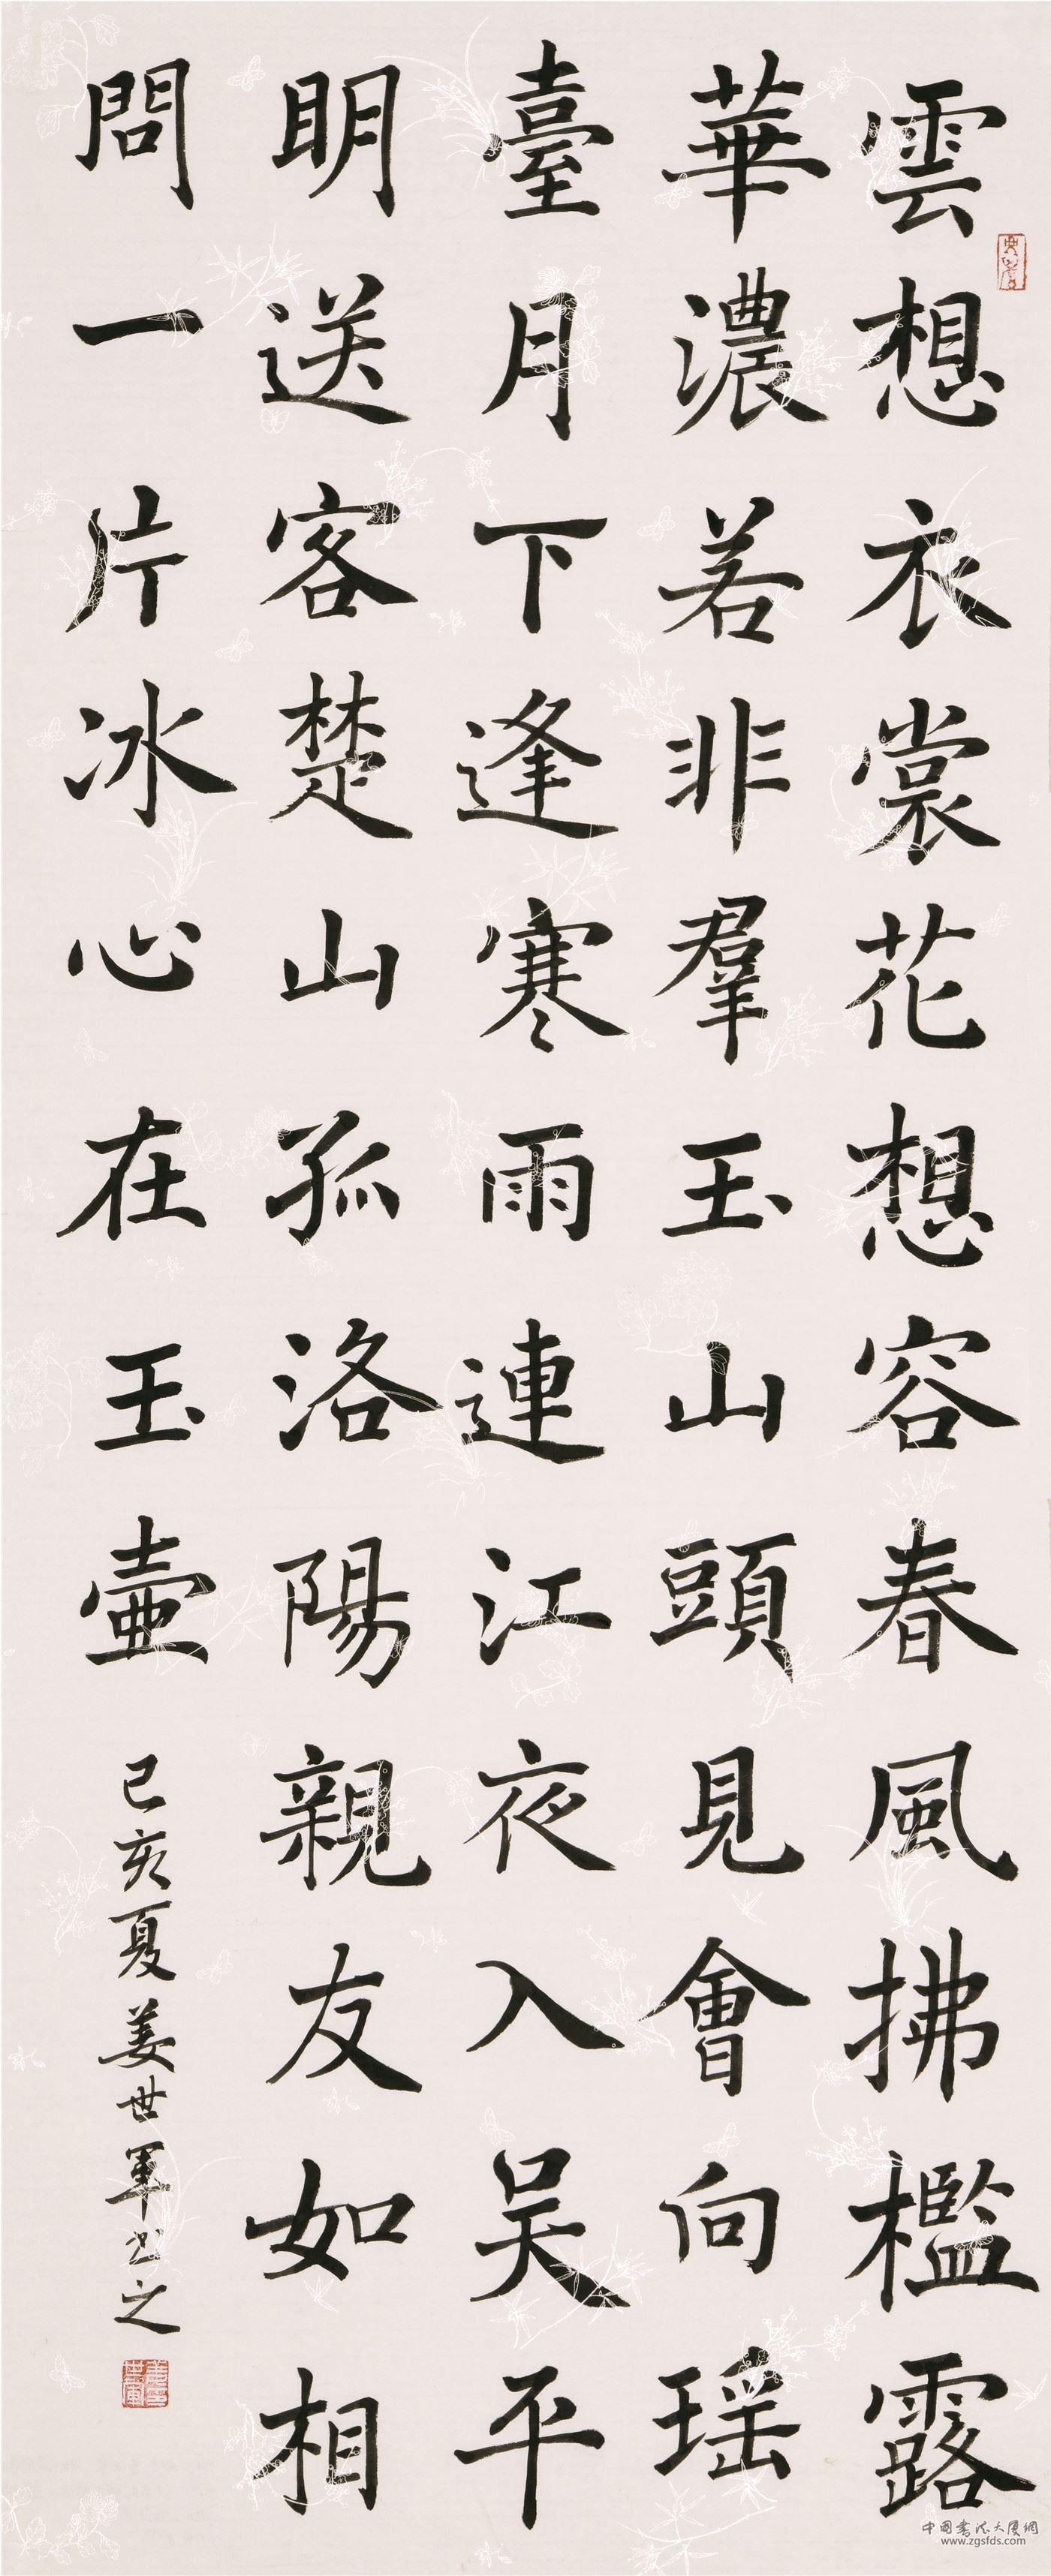 雲想衣裳花想容春風拂檻露
華濃若非羣玉山頭見會向瑶
臺月下逢寒雨連江夜入吴平
明送客楚山孤洛陽親友如相
問一片冰心在玉壺
己亥夏姜世軍书之
姜世軍印
中国書法大厦網
www.zgsfds.com